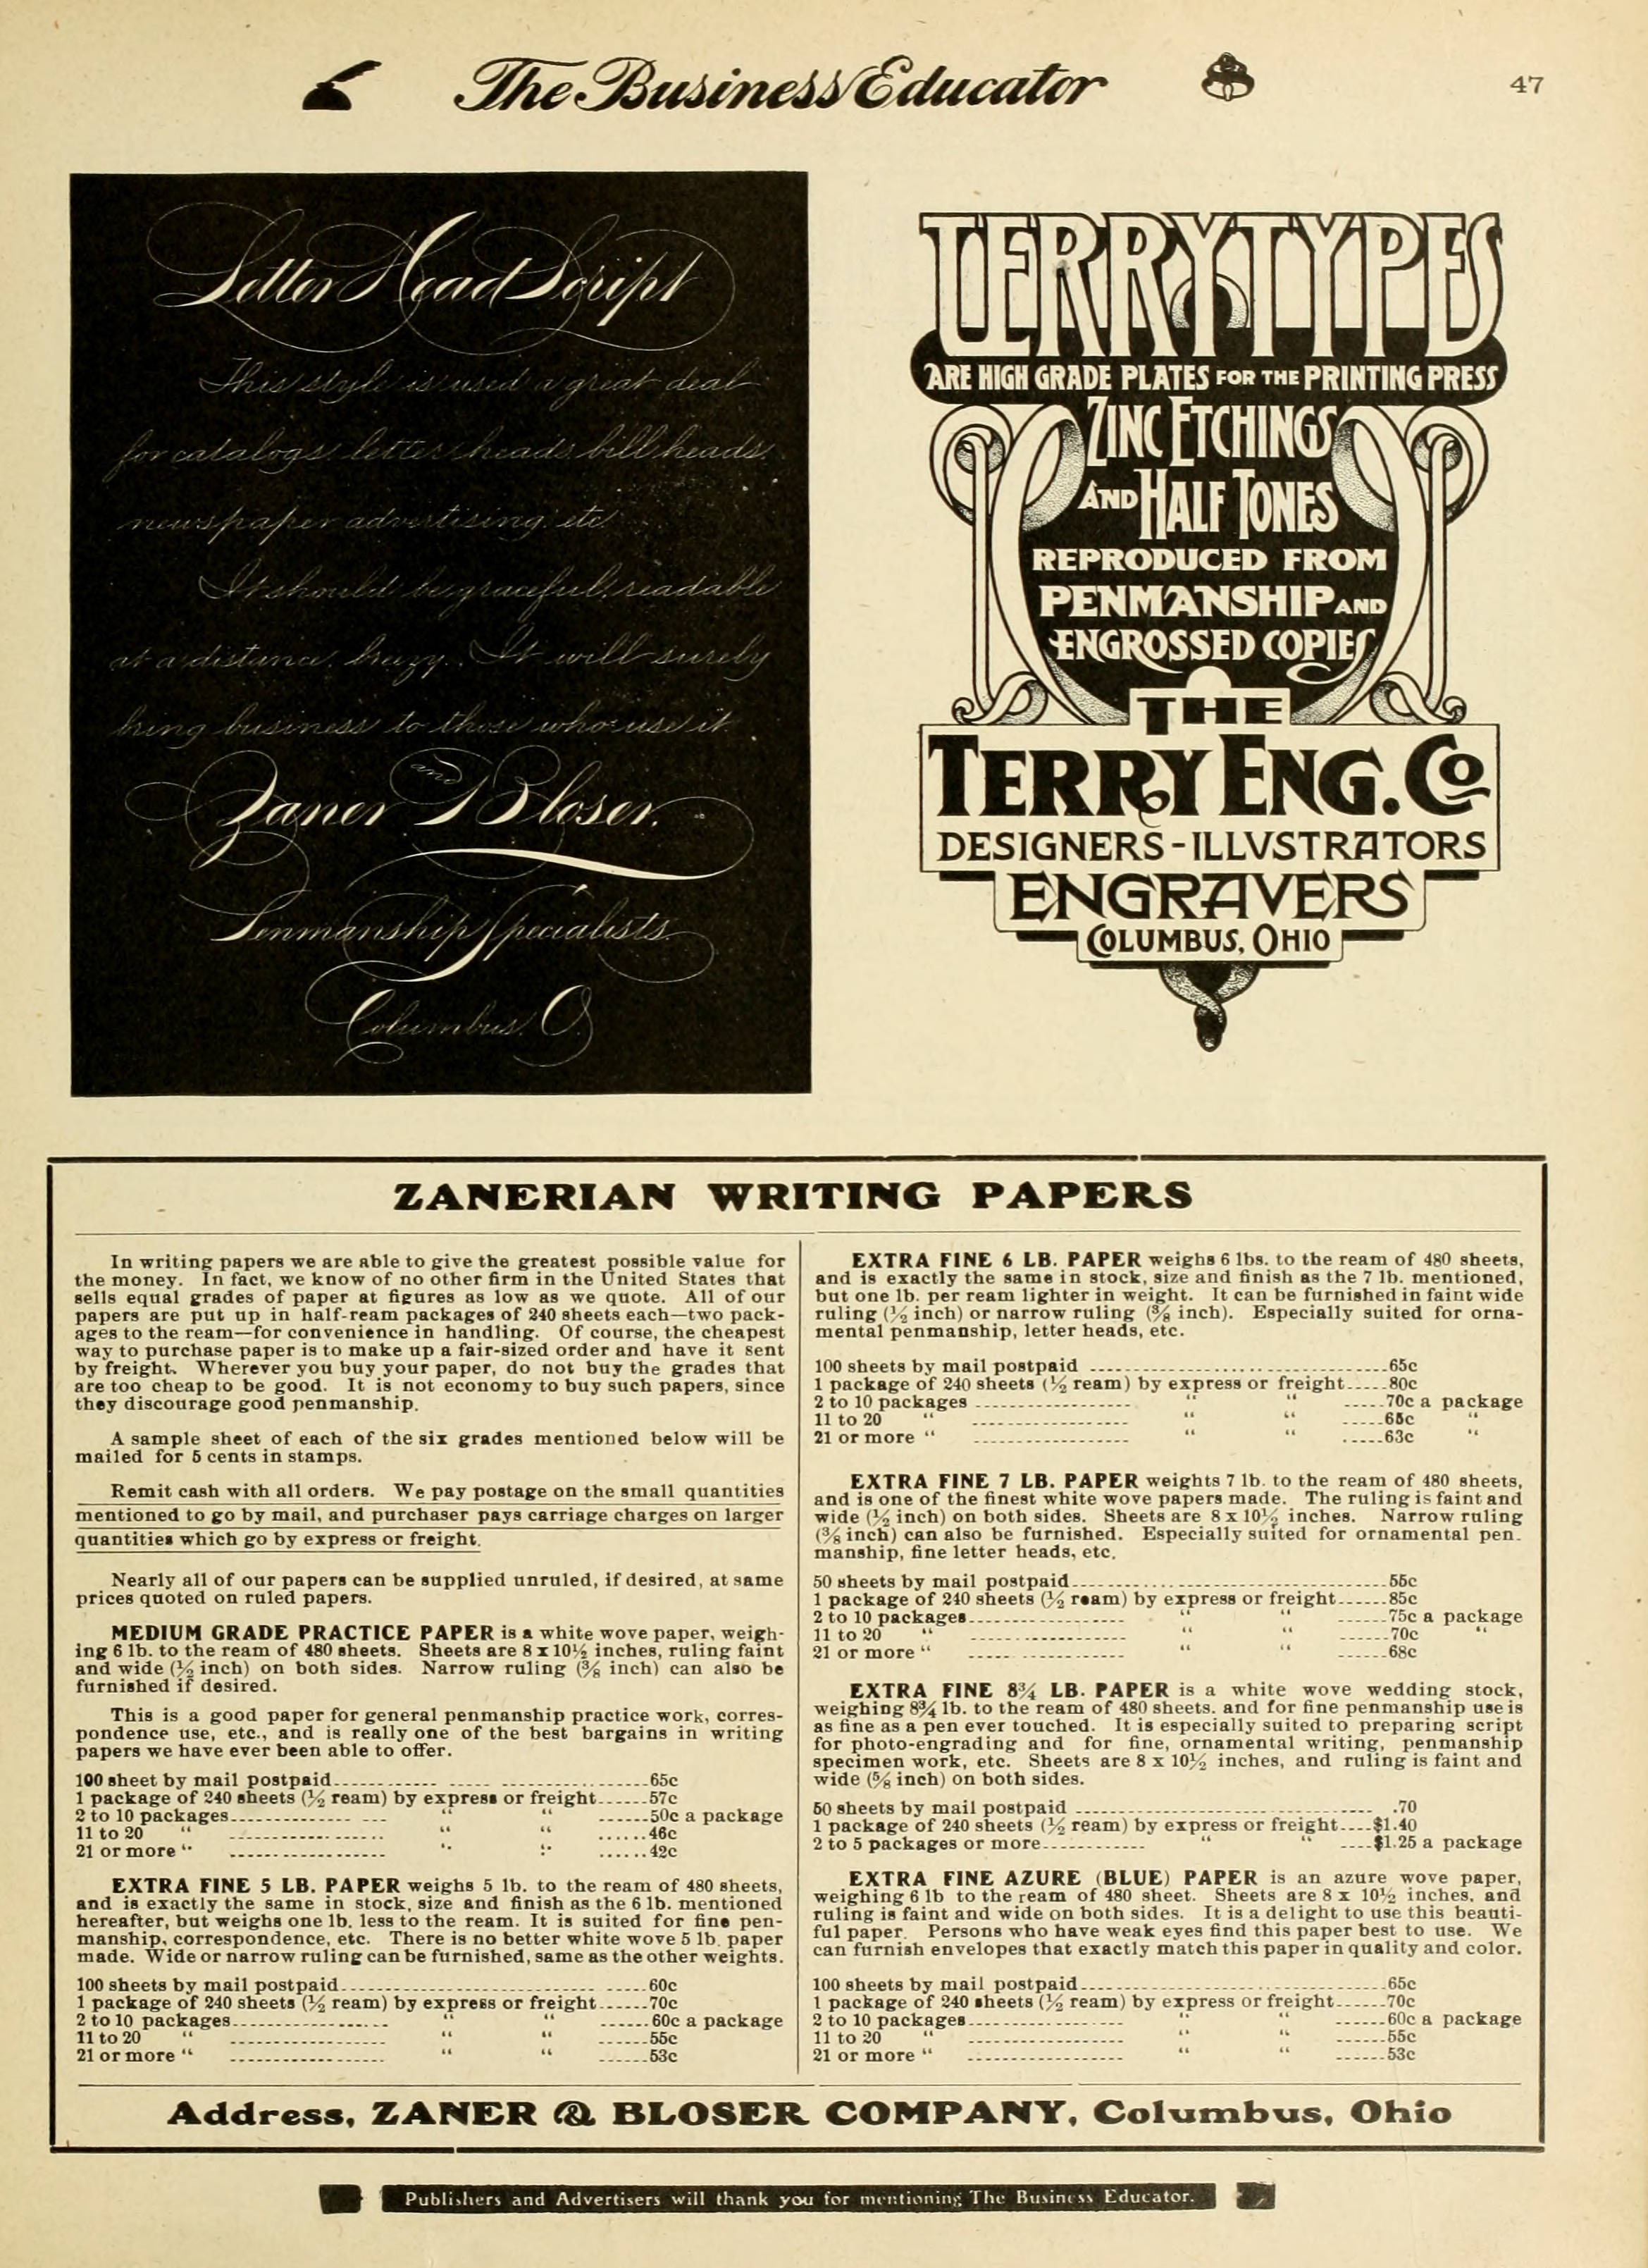 The Business Educator
47
Letter Head Script
This style is used a great deal
for catalogs, letter heads, bill heads,
newspaper advertising, etc.
It should be graceful, readable
at a distance, breezy. It will surely
bring business to those who use it.
Zaner and Bloser,
Penmanship Specialists.
Columbus, O.
TERRYTYPES
ARE HIGH GRADE PLATES FOR THE PRINTING PRESS
ZINC ETCHINGS
AND HALF TONES
REPRODUCED FROM
PENMANSHIP AND
ENGROSSED COPIES
THE
TERRY ENG. CO
DESIGNERS-ILLVSTRATORS
ENGRAVERS
COLUMBUS, OHIO
ZANERIAN WRITING PAPERS
In writing papers we are able to give the greatest possible value for
the money. In fact, we know of no other firm in the United States that
sells equal grades of paper at figures as low as we quote. All of our
papers are put up in half-ream packages of 240 sheets each—two pack-
ages to the ream—for convenience in handling. Of course, the cheapest
way to purchase paper is to make up a fair-sized order and have it sent
by freight. Wherever you buy your paper, do not buy the grades that
are too cheap to be good. It is not economy to buy such papers, since
they discourage good penmanship.
A sample sheet of each of the six grades mentioned below will be
mailed for 5 cents in stamps.
Remit cash with all orders. We pay postage on the small quantities
mentioned to go by mail, and purchaser pays carriage charges on larger
quantities which go by express or freight.
Nearly all of our papers can be supplied unruled, if desired, at same
prices quoted on ruled papers.
MEDIUM GRADE PRACTICE PAPER is a white wove paper, weigh-
ing 6 lb. to the ream of 480 sheets. Sheets are 8 x 10½ inches, ruling faint
and wide (½ inch) on both sides. Narrow ruling (⅜ inch) can also be
furnished if desired.
This is a good paper for general penmanship practice work, corres-
pondence use, etc., and is really one of the best bargains in writing
papers we have ever been able to offer.
100 sheet by mail postpaid........65c
1 package of 240 sheets (½ ream) by express or freight......57c
2 to 10 packages........ " " ......50c a package
11 to 20 " ........ " " ......46c
21 or more " ........ " " ......42c
EXTRA FINE 5 LB. PAPER weighs 5 lb. to the ream of 480 sheets,
and is exactly the same in stock, size and finish as the 6 lb. mentioned
hereafter, but weighs one lb. less to the ream. It is suited for fine pen-
manship, correspondence, etc. There is no better white wove 5 lb. paper
made. Wide or narrow ruling can be furnished, same as the other weights.
100 sheets by mail postpaid........60c
1 package of 240 sheets (½ ream) by express or freight......70c
2 to 10 packages........ " " ......60c a package
11 to 20 " ........ " " ......55c
21 or more " ........ " " ......53c
EXTRA FINE 6 LB. PAPER weighs 6 lbs. to the ream of 480 sheets,
and is exactly the same in stock, size and finish as the 7 lb. mentioned,
but one lb. per ream lighter in weight. It can be furnished in faint wide
ruling (½ inch) or narrow ruling (⅜ inch). Especially suited for orna-
mental penmanship, letter heads, etc.
100 sheets by mail postpaid ........65c
1 package of 240 sheets (½ ream) by express or freight.....80c
2 to 10 packages ........ " " .....70c a package
11 to 20 " ........ " " .....65c "
21 or more " ........ " " .....63c "
EXTRA FINE 7 LB. PAPER weights 7 lb. to the ream of 480 sheets,
and is one of the finest white wove papers made. The ruling is faint and
wide (½ inch) on both sides. Sheets are 8 x 10½ inches. Narrow ruling
(⅜ inch) can also be furnished. Especially suited for ornamental pen-
manship, fine letter heads, etc.
50 sheets by mail postpaid........55c
1 package of 240 sheets (½ ream) by express or freight......85c
2 to 10 packages........ " " ......75c a package
11 to 20 " ........ " " ......70c "
21 or more " ........ " " ......68c
EXTRA FINE 8¾ LB. PAPER is a white wove wedding stock,
weighing 8¾ lb. to the ream of 480 sheets. and for fine penmanship use is
as fine as a pen ever touched. It is especially suited to preparing script
for photo-engrading and for fine, ornamental writing, penmanship
specimen work, etc. Sheets are 8 x 10½ inches, and ruling is faint and
wide (⅝ inch) on both sides.
50 sheets by mail postpaid ........ .70
1 package of 240 sheets (½ ream) by express or freight....$1.40
2 to 5 packages or more........ " " ....$1.25 a package
EXTRA FINE AZURE (BLUE) PAPER is an azure wove paper,
weighing 6 lb to the ream of 480 sheet. Sheets are 8 x 10½ inches, and
ruling is faint and wide on both sides. It is a delight to use this beauti-
ful paper. Persons who have weak eyes find this paper best to use. We
can furnish envelopes that exactly match this paper in quality and color.
100 sheets by mail postpaid........65c
1 package of 240 sheets (½ ream) by express or freight......70c
2 to 10 packages........ " " ......60c a package
11 to 20 " ........ " " ......55c
21 or more " ........ " " ......53c
Address, ZANER & BLOSER COMPANY, Columbus, Ohio
Publishers and Advertisers will thank you for mentioning The Business Educator.